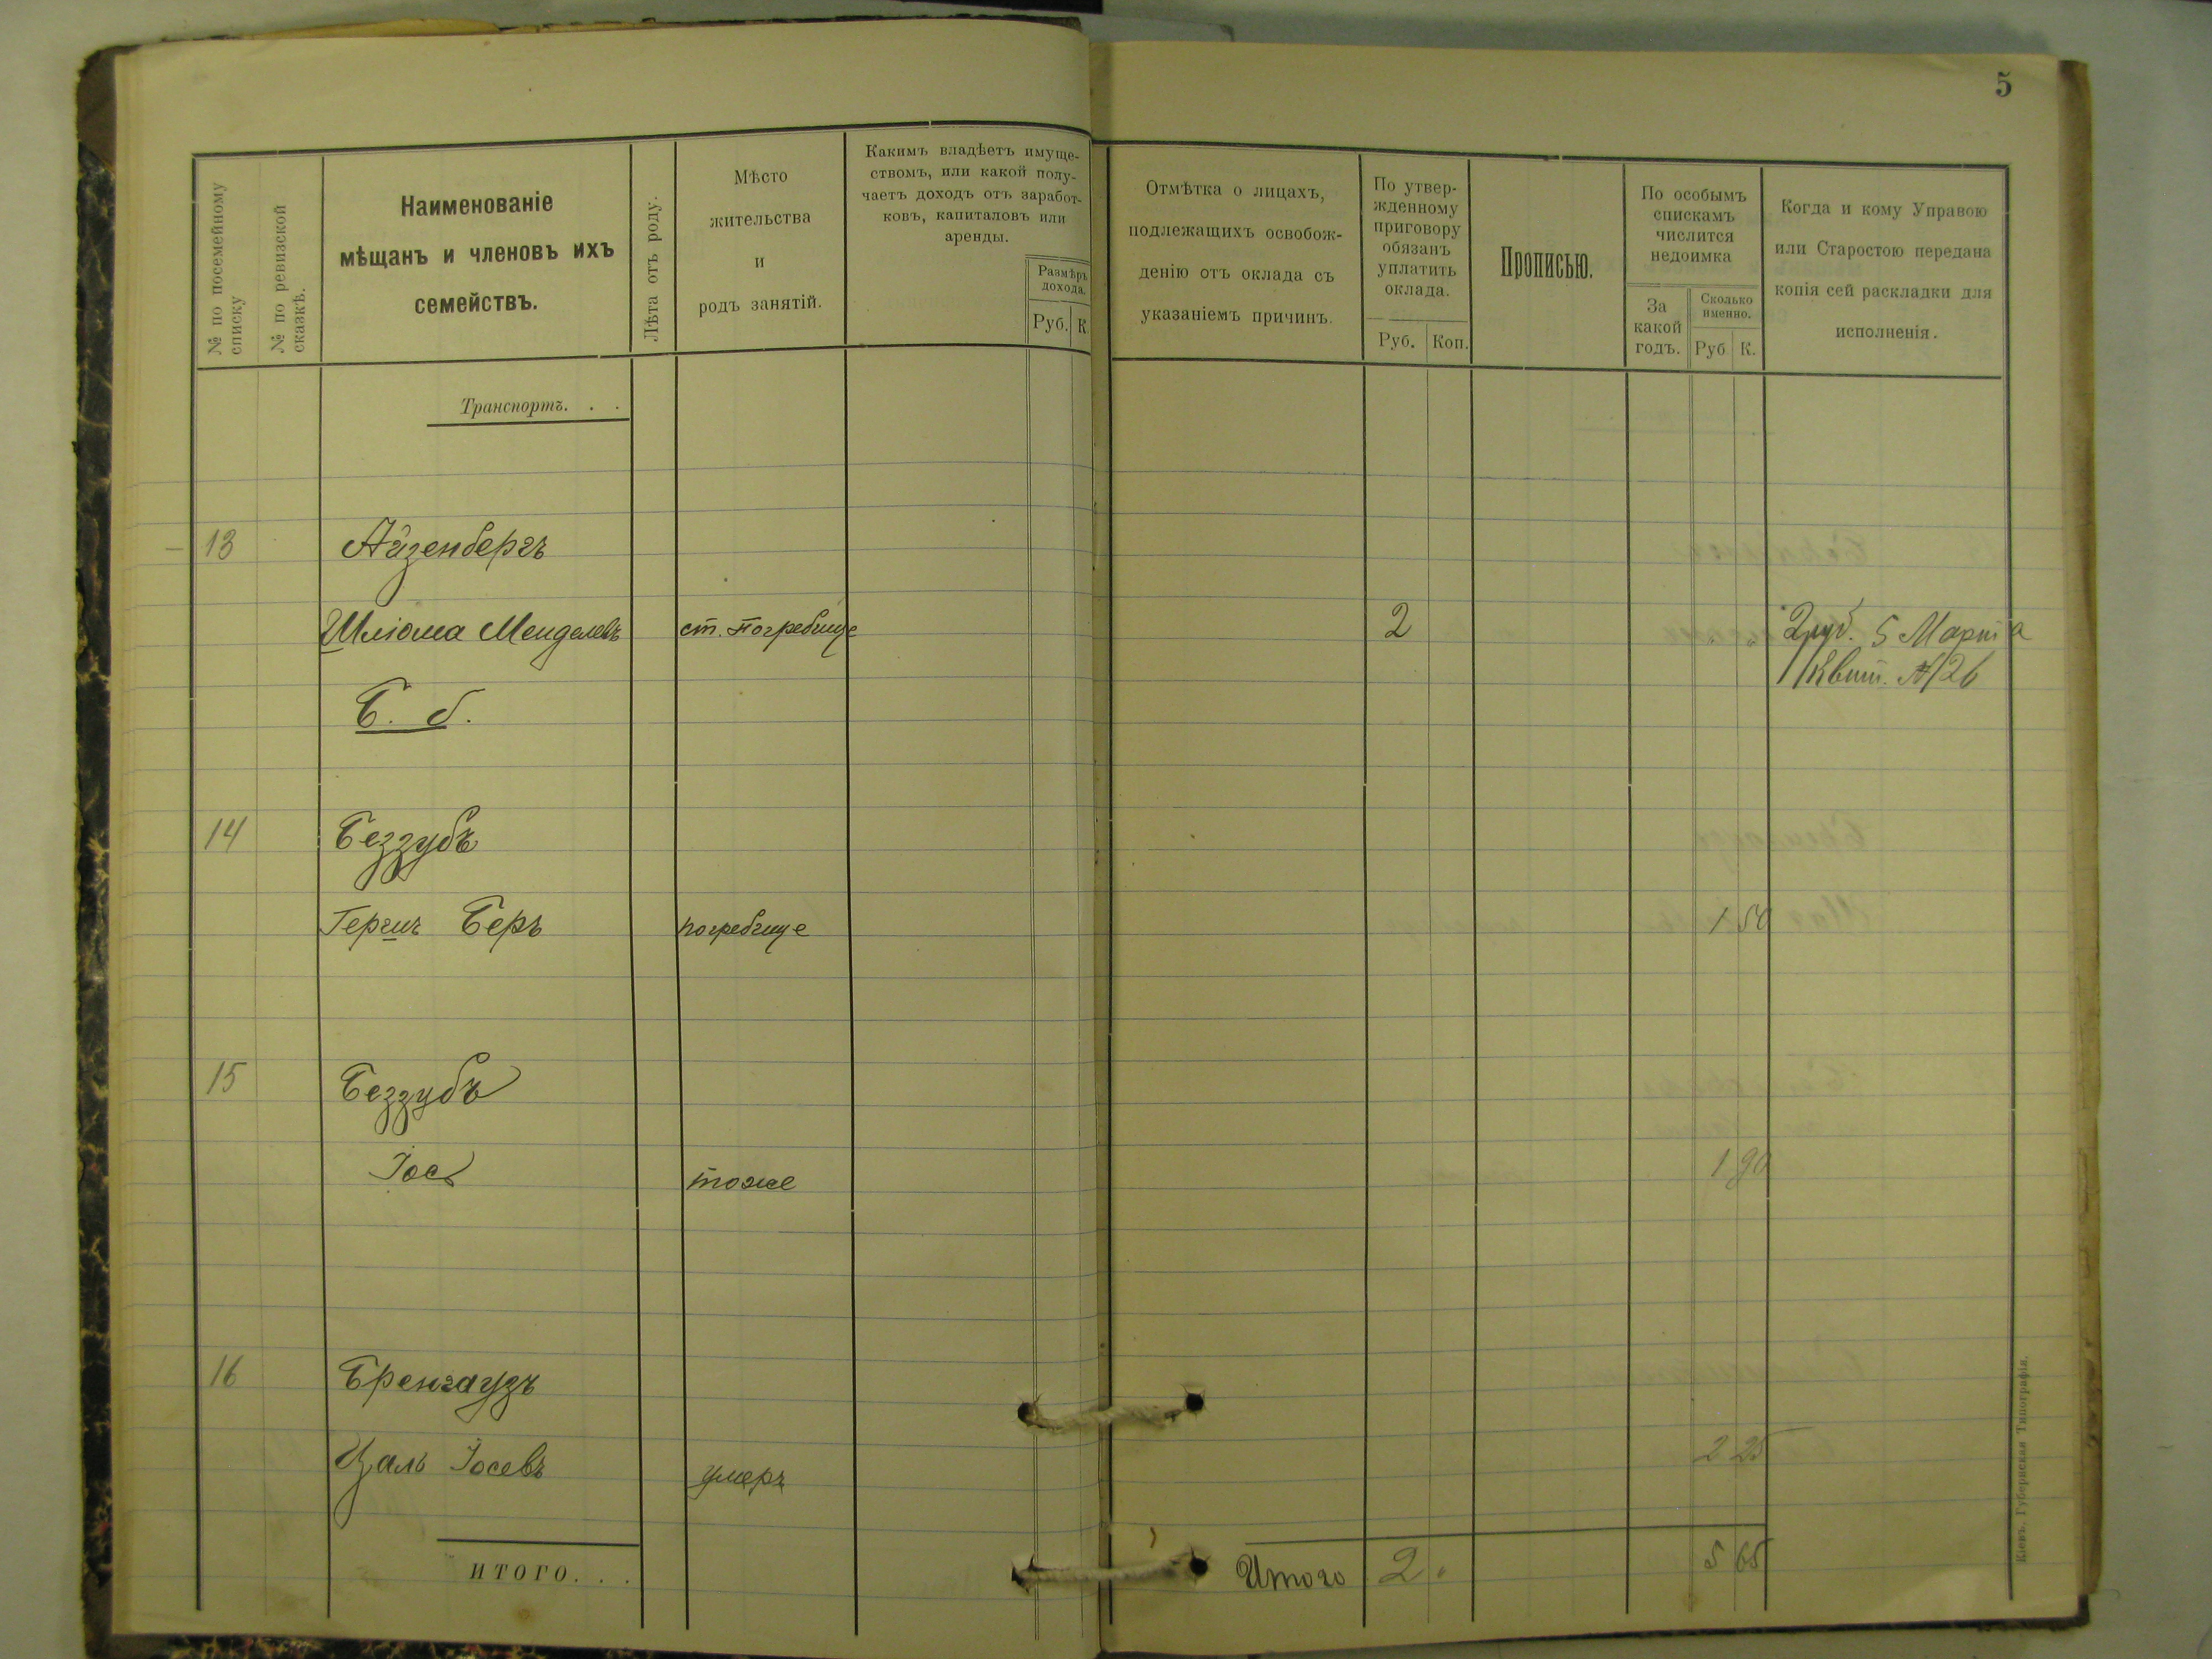 5
№ по посемейному
списку
№ по ревизской
сказкѣ.
Наименованіе
мѣщанъ и членовъ ихъ
семействъ.
Лѣта отъ роду.
Мѣсто
жительства
и
родъ занятій.
Какимъ владѣетъ имуще-
ствомъ, или какой полу-
чаетъ доходъ отъ заработ-
ковъ, капиталовъ или
аренды.
Размѣръ
дохода.
Руб. К.
Отмѣтка о лицахъ,
подлежащихъ освобож-
денію отъ оклада съ
указаніемъ причинъ.
По утвер-
жденному
приговору
обязанъ
уплатить
оклада.
Руб. Коп.
Прописью.
По особымъ
спискамъ
числится
недоимка
За
какой
годъ.
Сколько
именно.
Руб К.
Когда и кому Управою
или Старостою передана
копія сей раскладки для
исполненія.
Транспортъ. . .
13 Айзенбергъ
Шліома Менделевъ ст. Погребище 2 2 руб. 5 Марта
Квит. № 26
Б. б.
14 Беззубъ
Герш Беръ погребище 1 50
15 Беззубъ
Іос тоже 1 90
16 Бренгаузъ
Цаль Іосевъ умеръ 2 25
ИТОГО. . . Итого 2 5 65
Кіевъ. Губернская Типографія.